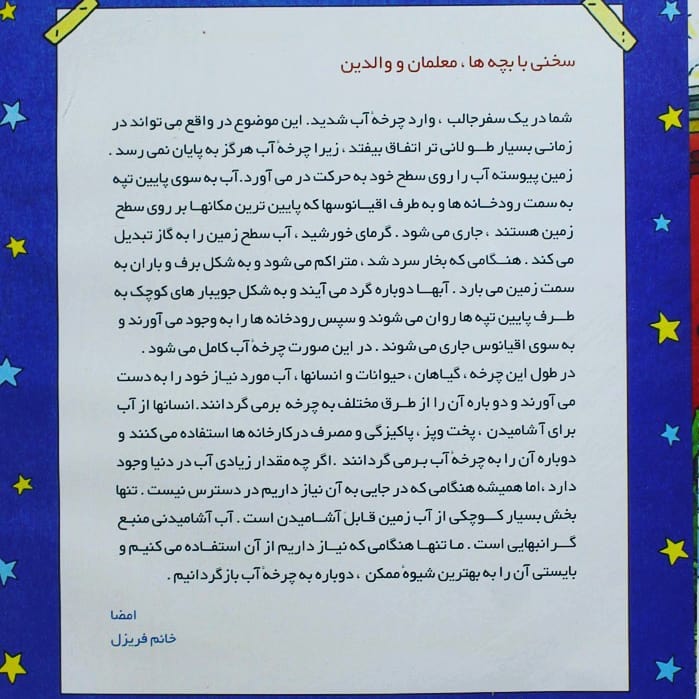 سخنی با بچه ها ، معلمان و والدین
شما در یک سفر جالب ، وارد چرخهٔ آب شدید. این موضوع در واقع می تواند در
زمانی بسیار طـــولانی تر اتفاق بیفتد ، زیرا چرخهٔ آب هرگز به پایان نمی رسد .
زمین پیوسته آب را روی سطح خود به حرکت در می آورد.آب به سوی پایین تپه
به سمت رودخـانه ها و به طرف اقیـانوسها که پایین ترین مکانهـا بر روی سطح
زمین هستند ، جاری می شود . گرمای خورشید ، آب سطح زمین را به گاز تبدیل
می کند . هنــگامی که بخار سرد شد ، متراکم می شود و به شکل برف و باران به
سمت زمین می بارد . آبهــا دوباره گرد می آیند و به شکل جویبار های کوچک به
طــرف پایین تپه ها روان می شوند و سپس رودخانه ها را به وجود می آورند و
به سوی اقیانوس جاری می شوند . در این صورت چرخهٔ آب کامل می شود .
در طول این چرخه ، گیاهان ، حیوانات و انسانها ، آب مورد نیاز خود را به دست
می آورند و دو باره آن را از طــرق مختلف به چرخه برمی گردانند.انسانها از آب
برای آشامیدن ، پخت وپز ، پاکیزگی و مصرف درکارخانه ها استفاده می کنند و
دوباره آن را به چرخهٔ آب بـرمی گردانند .اگر چه مقدار زیادی آب در دنیا وجود
دارد ،اما همیشه هنگامی که در جایی به آن نیاز داریم در دسترس نیست . تنها
بخش بسیار کــوچکی از آب زمین قـابل آشــامیدن است . آب آشامیدنی منبع
گــرانبهایی است . مـا تنهـا هنگامی که نیــاز داریم از آن استفــاده می کنیـم و
بایستی آن را به بهترین شیوهٔ ممکن ، دوباره به چرخهٔ آب بازگردانیم .
امضا
خانم فریزل